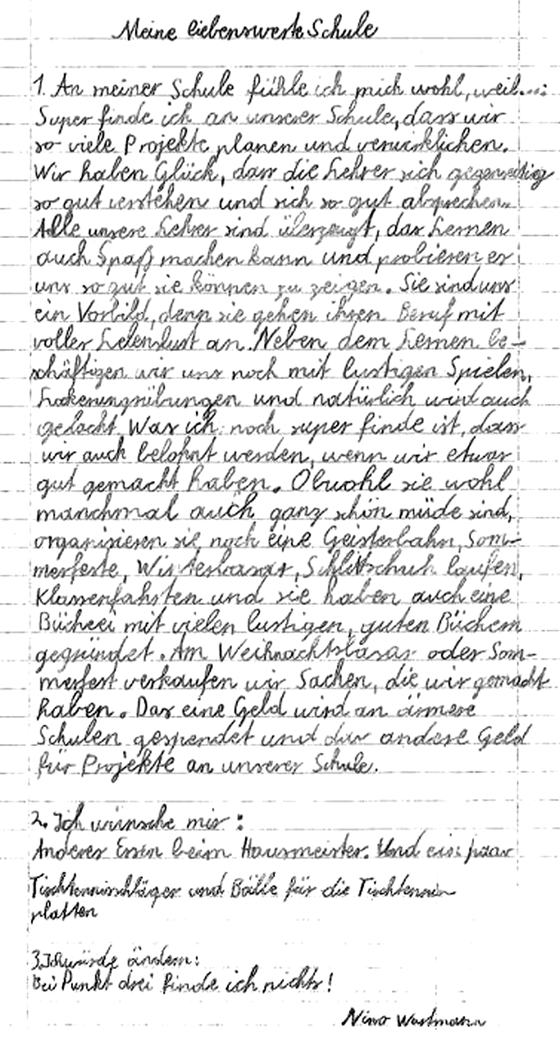 Meine liebenswerte Schule
1. An meiner Schule fühle ich mich wohl, weil...:
Super finde ich an unserer Schule, dass wir
so viele Projekte planen und verwirklichen.
Wir haben Glück, dass die Lehrer sich gegenseitig
so gut verstehen und sich so gut absprechen.
Alle unsere Lehrer sind überzeugt, das Lernen
auch Spaß machen kann und probieren es
uns so gut sie können zu zeigen. Sie sind uns
ein Vorbild, denn sie gehen ihren Beruf mit
voller Lebenslust an. Neben dem Lernen be-
schäftigen wir uns noch mit lustigen Spielen,
Lockerungsübungen und natürlich wird auch
gelacht. Was ich noch super finde ist, dass
wir auch belohnt werden, wenn wir etwas
gut gemacht haben. Obwohl sie wohl
manchmal auch ganz schön müde sind,
organisieren sie noch eine Geisterbahn, Som-
merfeste, Winterbasar, Schlittschuh laufen,
Klassenfahrten und sie haben auch eine
Bücherei mit vielen lustigen, guten Büchern
gegründet. Am Weihnachtsbasar oder Som-
merfest verkaufen wir Sachen, die wir gemacht
haben. Das eine Geld wird an ärmere
Schulen gespendet und das andere Geld
für Projekte an unserer Schule.
2. Ich wünsche mir:
Anderes Essen beim Hausmeister. Und ein paar
Tischtennisschläger und Bälle für die Tischtennis
platten
3. Ich würde ändern:
Bei Punkt drei finde ich nichts!
Nino